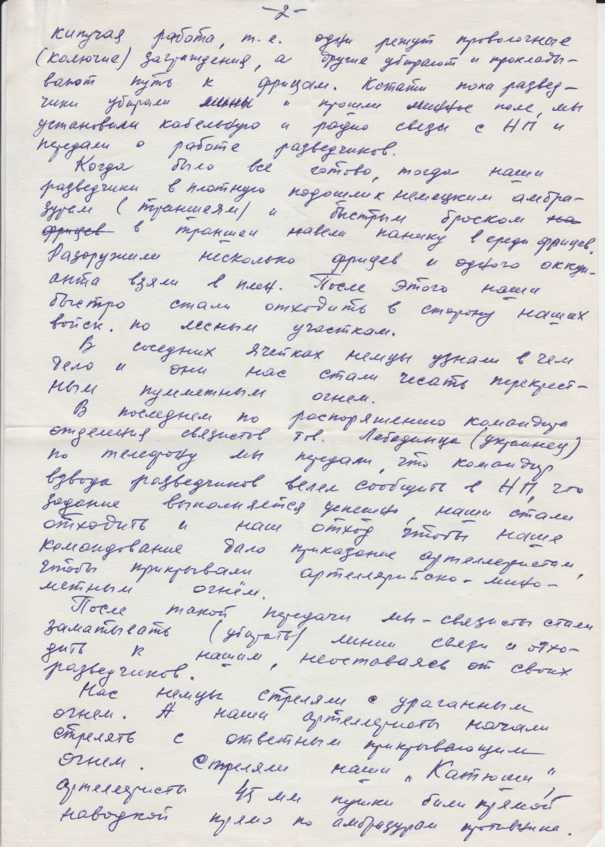 -2-
кипучая работа, т.е. одни режут проволочные
(колючие) заграждения, а другие убирают и проклады-
вают путь к фрицам. Кстати пока развед-
чики убирали мины и прошли минное поле, мы
установили кабельную и радио связь с НП и
передали о работе разведчиков.
Когда было все готово, тогда наши
разведчики в плотную подошли к немецким амбра-
зурам (траншеям) и быстрым броском на
фрицев в траншеи навели панику в среди фрицев.
Разоружили несколько фрицев и одного оккуп-
анта взяли в плен. После этого наши
быстро стали отходить в сторону наших
войск. по лесным участкам.
В соседних ячейках немцы узнали в чем
дело и они нас стали чесать перекрест-
ным пулеметным огнем.
В последнем по распоряжению командира
отделения связистов тов. Лебединца (украинец)
по телефону мы передали, что командир
взвода разведчиков велел сообщить в НП, что
задание выполняется успешно, наши стали
отходить и наш отход чтобы наше
командование дало приказание артеллеристом,
чтобы прикрывали артеллярийско-мино-
метным огнём.
После такой передачи мы-связисты стали
заматывать (убирать) линии связи и отхо-
дить к нашим, неоставаясь от своих
разведчиков.
Нас немцы стреляли с ураганным
огнем. А наши артеллеристы начали
стрелять с ответным прикрывающим
огнем. Стреляли наши „Катюши",
артеллеристы 45 мм пушки били прямой
наводкой прямо по амбразурам противника.